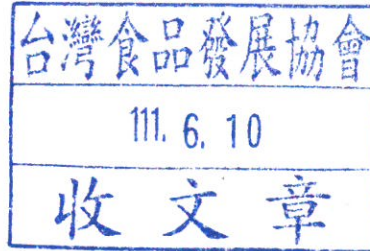 台灣食品發展協會
111. 6. 10
收文章